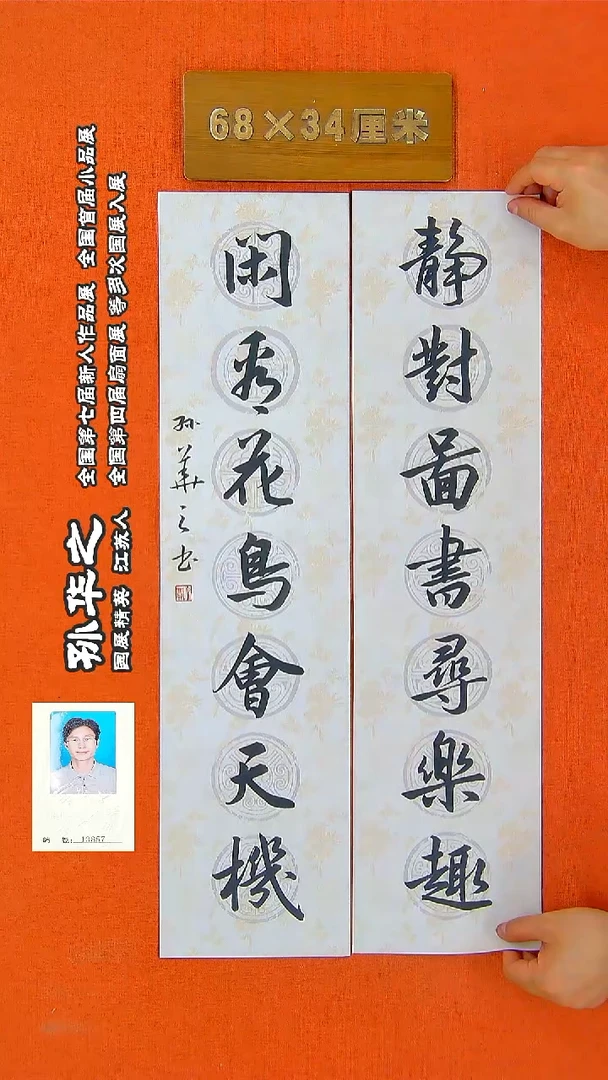 68×34厘米
靜對圖書尋樂趣
闲看花鳥會天機
孙華之书
孙华之
国展精英 江苏人
全国第七届新人作品展 全国首届小品展
全国第四届扇面展 等多次国展入展